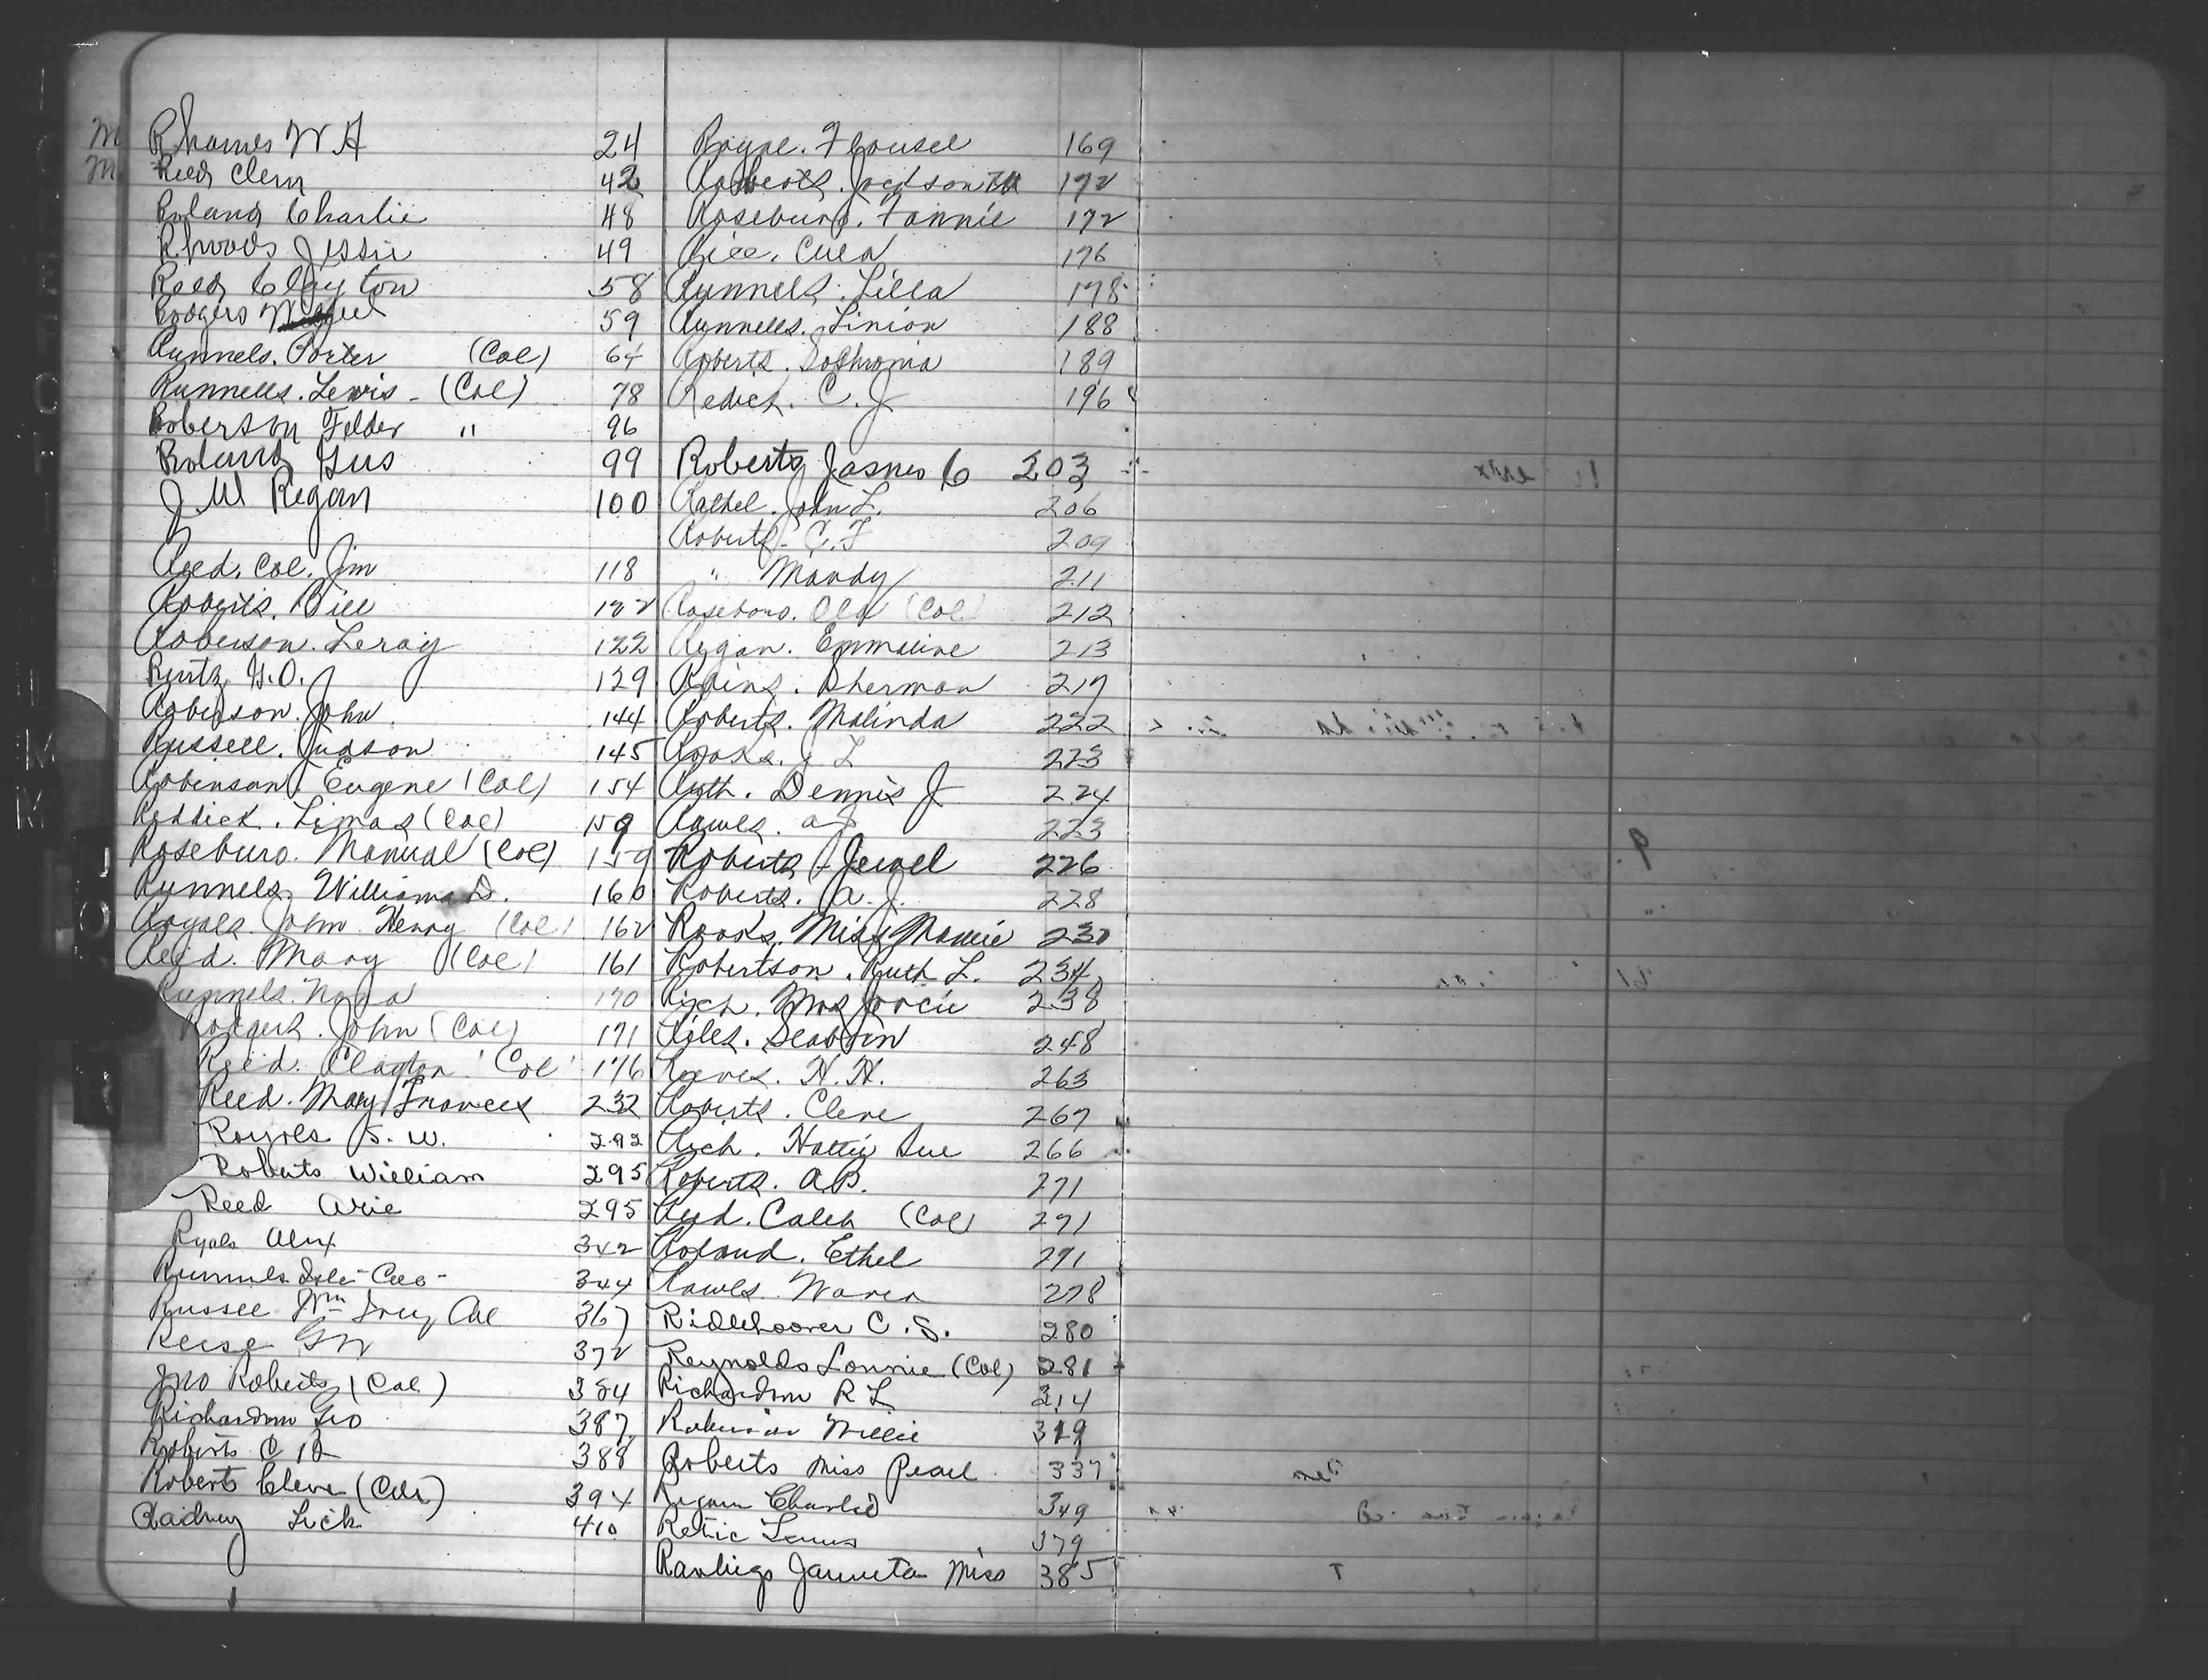 M Rhames W H 24
M Reed Clem 42
Roland Charlie 48
Rhwods Jessie 49
Reed Clayton 58
Rodgers 59
Runnels. Porter (Col) 64
Runnells. Lewis - (Col) 78
Roberson Felder " 96
Roland Gus 99
J. W Regan 100
Reed. Col. Jim 118
Roberts. Bill 122
Roberson. Leroy 122
Rentz G.O. 129
Roberson. John 144
Russell. Judson 145
Robinson. Eugene (Col) 154
Reddick. Limas (Col) 159
Roseburo. Manual (Col) 159
Runnels, William D. 160
Royals. John Henry (Col) 162
Reid. Mary (Col) 161
Runnels. Nora 170
Rodgers. John (Col) 171
Reid. Clayton (Col 176
Reed. Mary Frances 232
Royols S. W. 292
Roberts William 295
Reed Arie 295
Ryals Alex 342
Runnels 344
Russell Wm Col 367
Reese G W 372
Jno Roberts (Col) 384
Richardson Geo 387
Roberts C 388
Roberts Cleve (Col) 394
Lick 410
Flousee 169
Roberts. Jackson 172
Roseburo. Fannie 172
Rice. Cula 176
Runnels. Lilla 178
Runnells. Linion 188
Roberts. Sophronia 189
Redick. C. J 196
Roberts James C 203
Rachel. John L. 206
Roberts - C. F 209
" Mandy 211
Roseboro. Ola (Col. 212
Regan. Emmaline 213
Rains. Sherman 217
Roberts. Malinda 222
Rooks. J L 223
Ruth. Dennis J 224
Rawls. 223
Roberts - Jewel 226
Roberts. A. J. 228
Rooks, Miss Mamie 230
Robertson. Ruth L. 234
Rich. Mrs 238
Riles. Seaborn 248
Reeves. H. H. 263
Roberts. Cleve 267
Rich. Hattie Sue 266
Roberts. A.B. 271
Reed. Caleb (Col) 271
Roland. Ethel 271
Rawls. 278
Ridlehoover C. S. 280
Reynolds Lonnie (Col) 281
Richardson R L 314
Robinson Willie 319
Roberts Miss Pearl 337
Regan Charlie 349
Retic 379
Miss 385